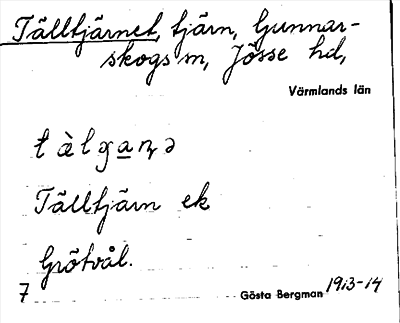 Tälltjärnet, tjärn, Gunnar-
skogs sn, Jösse hd,
Värmlands län
Tälltjärn ek
Grötvål.
7
Gösta Bergman 1913-14